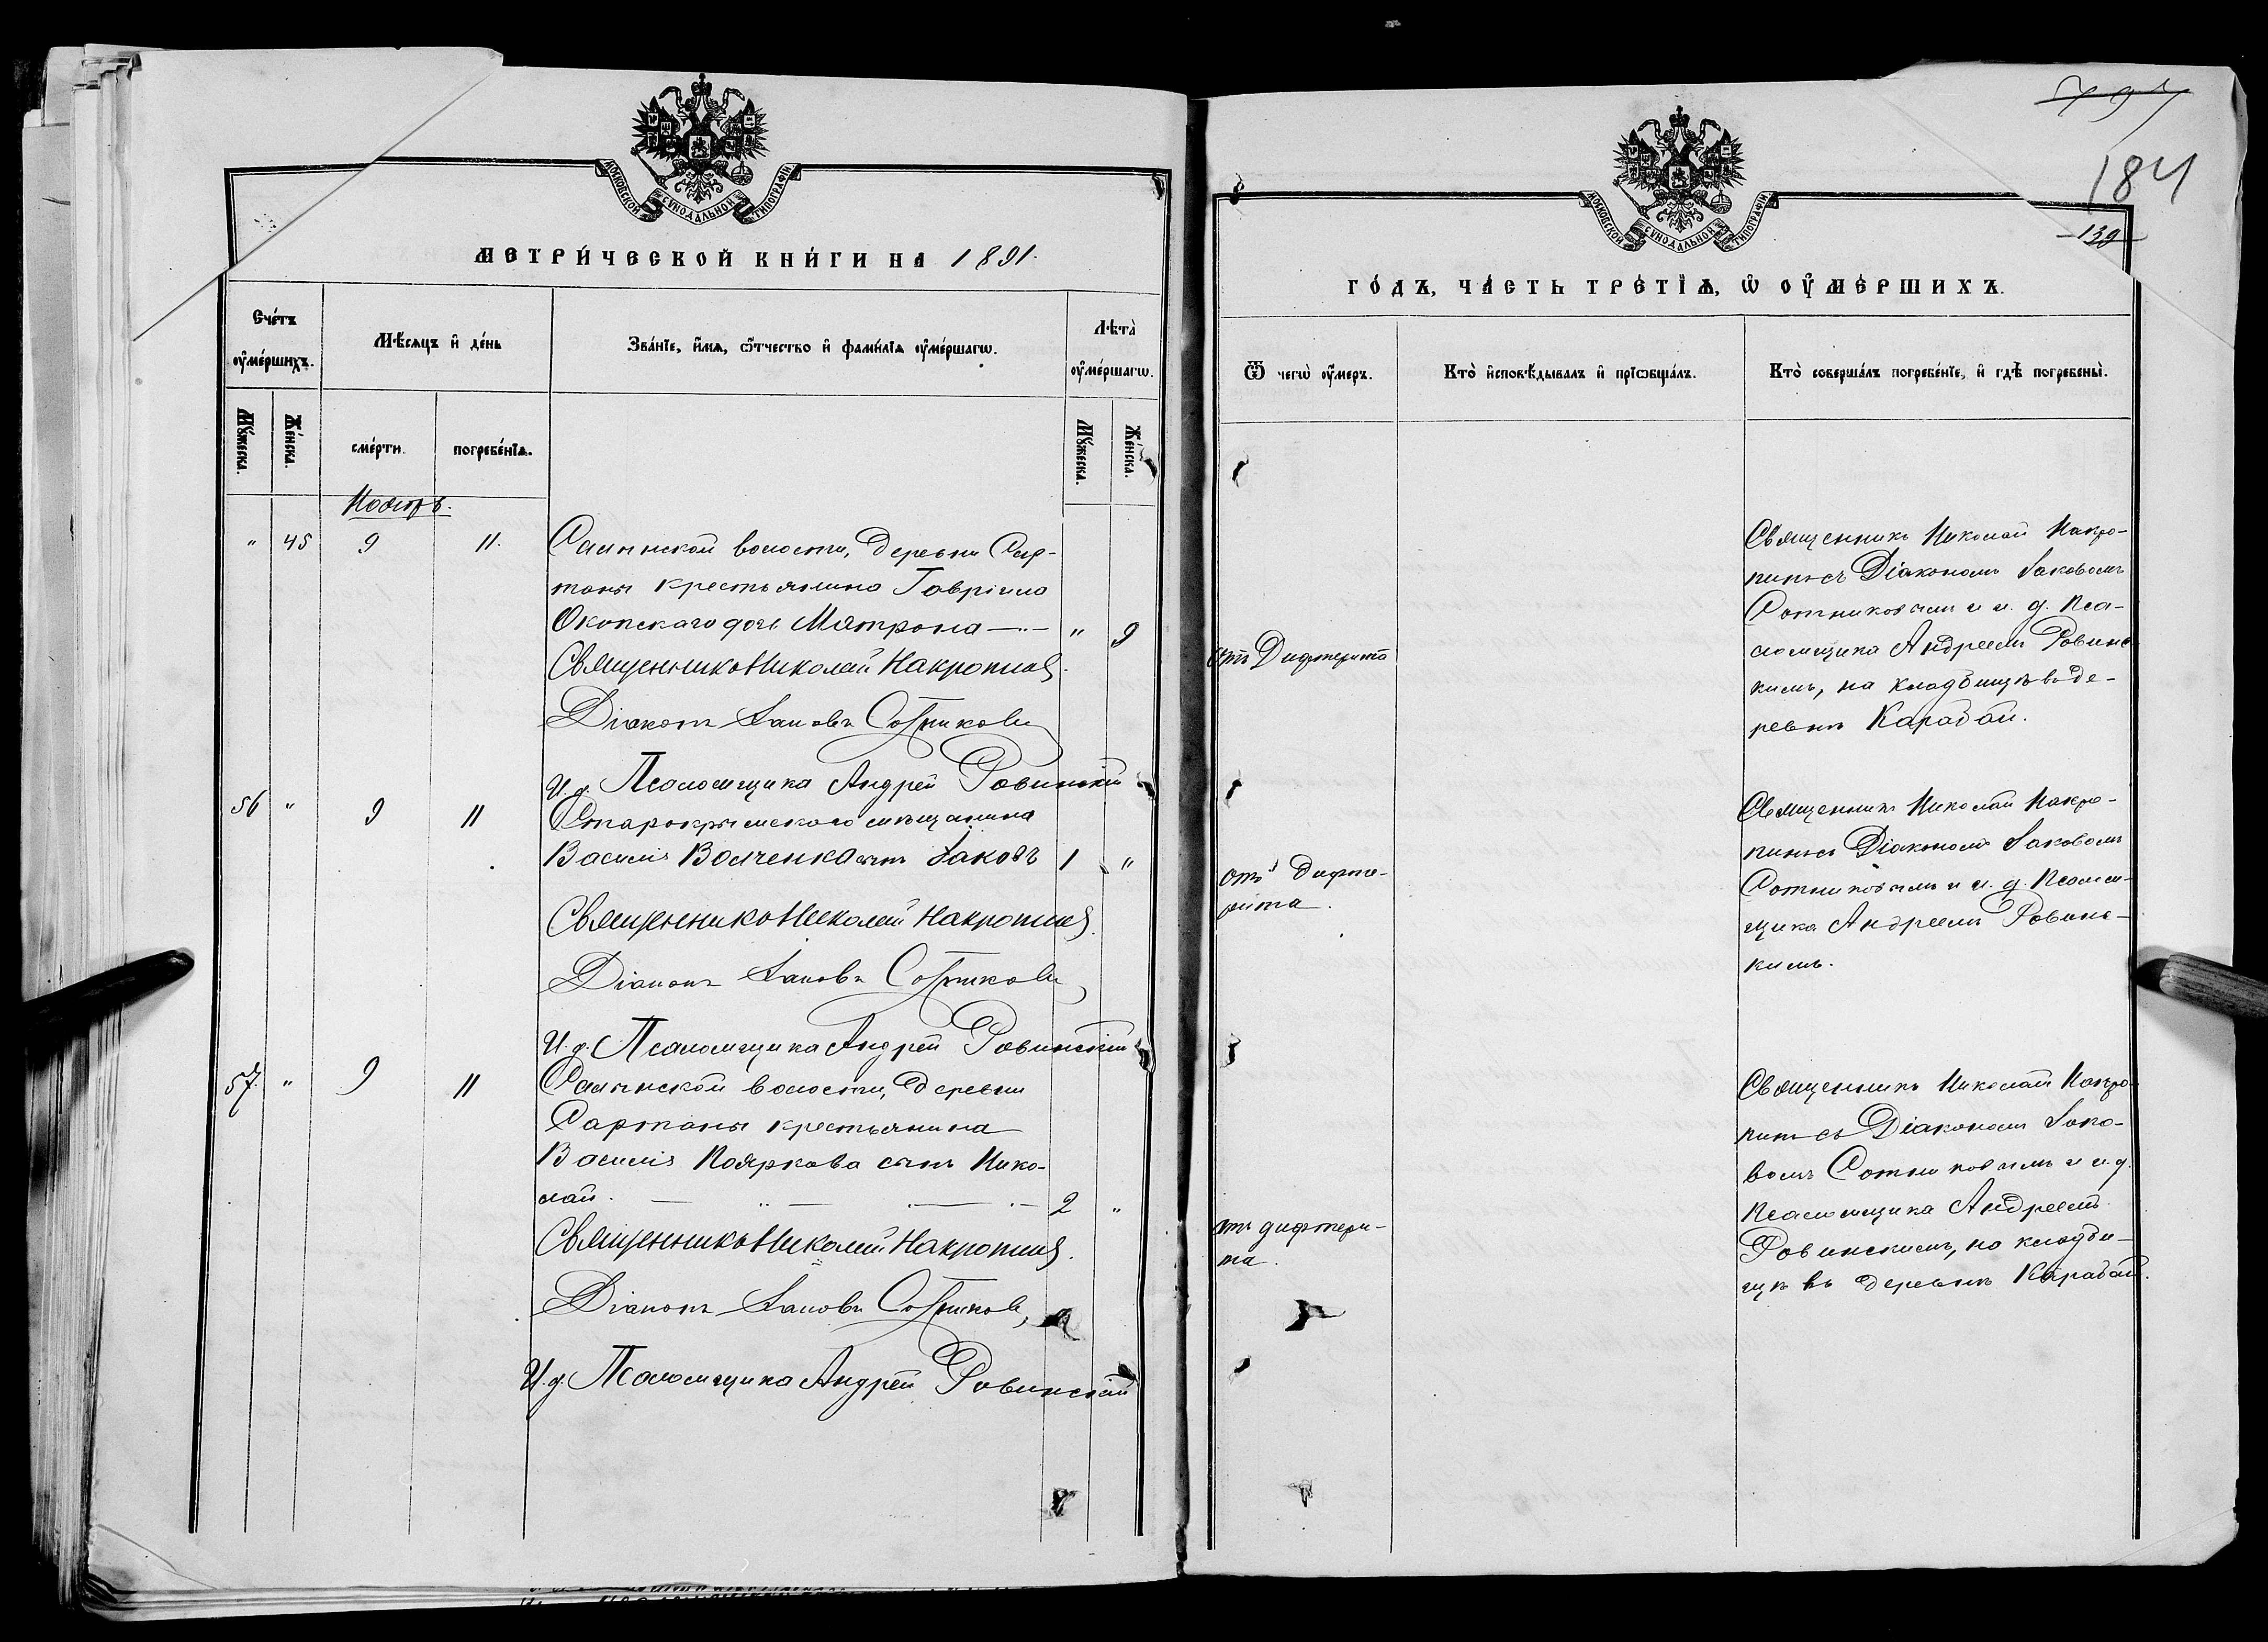 МОСКОВСКОЙ СѴНОДАЛЬНОЙ ТИПОГРАФІИ.
МЕТРИ́ЧЕСКОЙ КНИ́ГИ НА 1891.
Сче́тъ ᲂу҆ме́ршихъ.
Мѣ́сяцъ и҆ де́нь
Зва́нїе, и҆́мѧ, ѻ҆́тчество и҆ фами́лїѧ ᲂу҆ме́ршагѡ.
Лѣта̀ ᲂу҆ме́ршагѡ.
Мꙋ́жеска.
Же́нска.
сме́рти.
погребе́нїѧ.
Мꙋ́жеска.
Же́нска.
Ноябрь.
" 45 9 11. Салынской волости, деревни Сар-
таны крестьянина Гавріила
Окопскаго дочь Матрона " 9
Священникъ Николай Накропинъ.
Діаконъ Іаковъ Сотниковъ
И. д. Псаломщика Андрей Ровинскій
56 " 9 11 Старокрымскаго мѣщанина
Василія Волченка сынъ Іаковъ 1 "
Священникъ Николай Накропинъ.
Діаконъ Іаковъ Сотниковъ
И. д. Псаломщика Андрей Ровинскій
57. " 9 11 Салынской волости, деревни
Сартаны крестьянина
Василія Пояркова сынъ Нико-
лай. 2 "
Священникъ Николай Накропинъ.
Діаконъ Іаковъ Сотниковъ
И. д. Псаломщика Андрей Ровинскій
797
184
139
МОСКОВСКОЙ СѴНОДАЛЬНОЙ ТИПОГРАФІИ.
ГО́ДЪ, ЧА́СТЬ ТРЕ́ТЇѦ, Ѡ҆ ОУ҆МЕ́РШИХЪ.
Ѿ чегѡ̀ ᲂу҆́меръ.
Кто̀ и҆сповѣ́дывалъ и҆ прїѡбща́лъ.
Кто̀ соверша́лъ погребе́нїе, и҆ гдѣ̀ погребены̀.
отъ Дифтерита
Священникъ Николай Накро-
пинъ съ Діакономъ Іаковомъ
Сотниковымъ и и. д. Пса-
ломщика Андреемъ Ровинс-
кимъ, на кладбищѣ въ де-
ревнѣ Карабай.
отъ дифте-
рита.
Священникъ Николай Накро-
пинъ съ Діакономъ Іаковомъ
Сотниковымъ и и. д. Псалом-
щика Андреемъ Ровинс-
кимъ.
отъ дифтери-
та.
Священникъ Николай Накро-
пинъ съ Діакономъ Іако-
вомъ Сотниковымъ и и. д.
Псаломщика Андреемъ
Ровинскимъ, на кладби-
щѣ въ деревнѣ Карабай.